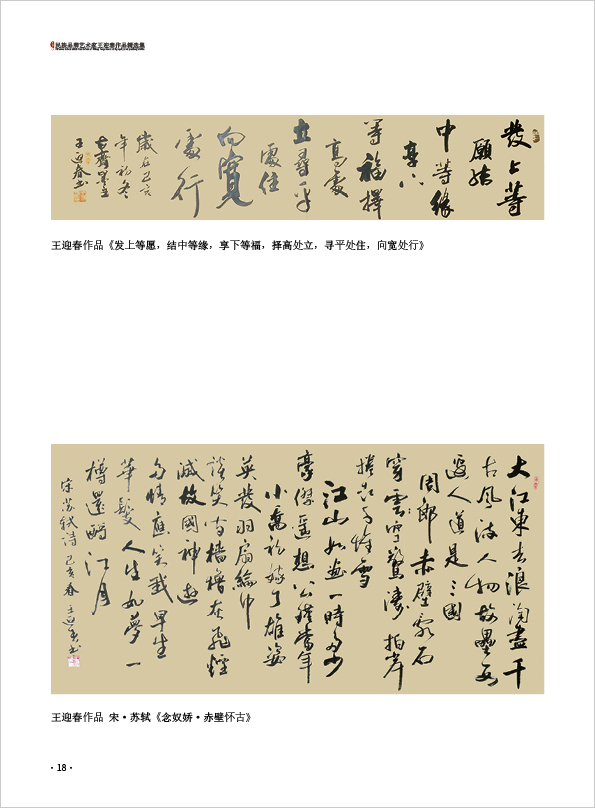 民族品牌艺术家王迎春作品精选集
發上等
願結
中等緣
享下
等福擇
高處
立尋平
處住
向寬
處行
歲在己亥
年初冬
古齊
王迎春书
王迎春作品《发上等愿，结中等缘，享下等福，择高处立，寻平处住，向宽处行》
大江東去浪淘盡千
古風流人物故壘西
邊人道是三國
周郎赤壁亂石
穿雲驚濤拍岸
捲起千堆雪
江山如畫一時多少
豪傑遥想公瑾當年
小喬初嫁了雄姿
英發羽扇綸巾
談笑间檣櫓灰飛煙
滅故國神遊
多情應笑我早生
華髮人生如夢一
樽還酹江月
宋苏軾詩己亥春王迎春书
王迎春作品 宋·苏轼《念奴娇·赤壁怀古》
·18·